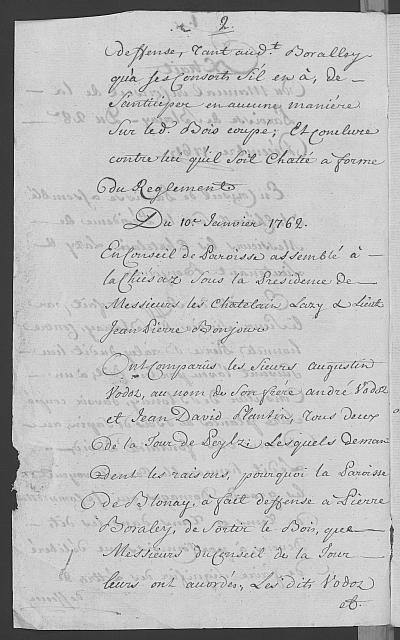 2.
deffense, tant aud.t Boralley
qu'a ses Consorts s'il en à, de
s'anticiper en aucune maniére
sur led. Bois coupé; Et conclure
contre lui qu'il soit Chatié a forme
du Reglement
Du 10.e Janvier 1762.
En Conseil de Paroisse assemblé à
la Chiésaz sous la Presidence de
Messieurs les Chatelain Lazy & Lieut
Jean Pierre Bonjour
Ont Comparus les sieurs augustin
Vodoz, au nom de son frére andré Vodoz
et Jean David Plantin, tous deux
de la Tour de Peylz; Lesquels deman
dent les raisons, pourquoi la Paroisse
de Blonay, a fait deffense à Pierre
Boraley, de sortir le Bois, que
Messieurs du Conseil de la Tour
leurs ont accordés, Les dits Vodoz
et.